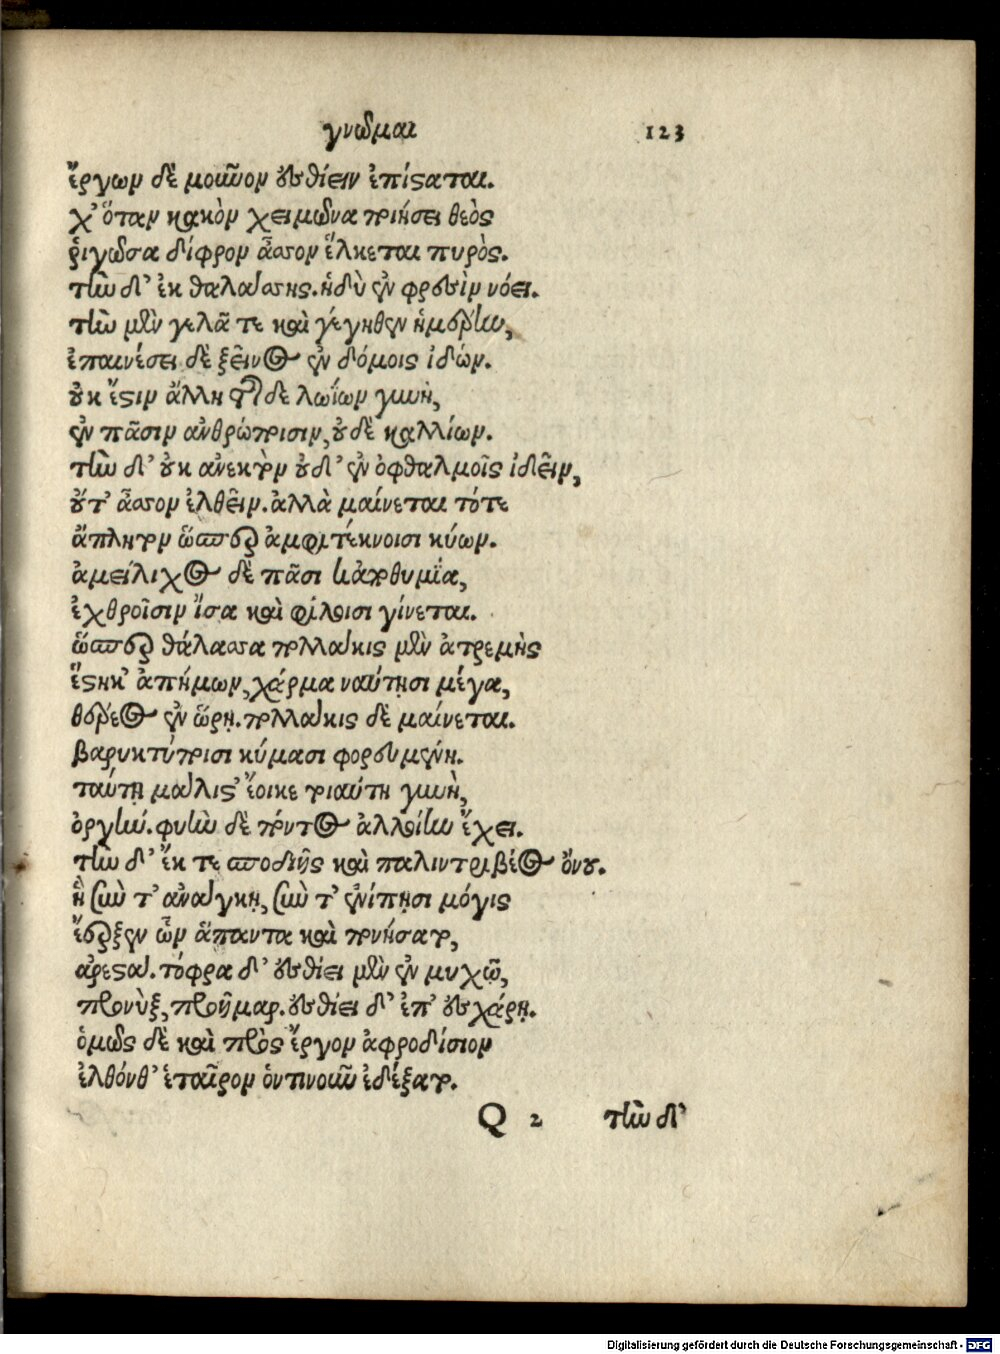 γνῶμαι 123
ἔργων δὲ μοῦνον ἐσθίειν ἐπίσταται.
χ' ὅταν κακὸν χειμῶνα ποιήσει θεὸς
ῥιγῶσα δίφρον ἆσσον ἕλκεται πυρός.
τὴν δ' ἐκ θαλάσσης. ἡ δύ' ἐν φρεσὶν νόει.
τὴν μὲν γελᾶ τε καὶ γέγηθεν ἡμέρην,
ἐπαινέσει δὲ ξεῖνος ἐν δόμοις ἰδών.
οὐκ ἔστιν ἄλλη τῆσδε λωΐων γυνὴ,
ἐν πᾶσιν ἀνθρώποισιν, οὐδὲ καλλίων.
τὴν δ' οὐκ ἀνεκτὸν οὐδ' ἐν ὀφθαλμοῖς ἰδεῖν,
οὔτ' ἆσσον ἐλθεῖν. ἀλλὰ μαίνεται τότε
ἄπλητον ὥσπερ ἀμφὶ τέκνοισι κύων.
ἀμείλιχος δὲ πᾶσι κἀποθυμία,
ἐχθροῖσιν ἴσα καὶ φίλοισι γίνεται.
ὥσπερ θάλασσα πολλάκις μὲν ἀτρεμὴς
ἕστηκ' ἀπήμων, χάρμα ναύτησι μέγα,
θέρεος ἐν ὥρῃ. πολλάκις δὲ μαίνεται.
βαρυκτύποισι κύμασι φορευμένη.
ταύτῃ μάλιστ' ἔοικε τοιαύτη γυνὴ,
ὀργήν. φυὴν δὲ πόντος ἀλλοίην ἔχει.
τὴν δ' ἔκ τε σποδιῆς καὶ παλιντριβέος ὄνου.
ἣ σὺν τ' ἀνάγκῃ, σὺν τ' ἐνίπῃσι μόγις
ἔερξεν ὦν ἅπαντα καὶ πονήσατο,
ἀρεστά. τόφρα δ' ἐσθίει μὲν ἐν μυχῷ,
προνὺξ, προῆμαρ. ἐσθίει δ' ἐπ' ἐσχάρῃ.
ὁμῶς δὲ καὶ πρὸς ἔργον ἀφροδίσιον
ἐλθόνθ' ἑταῖρον ὁντινοῦν ἐδέξατο.
Q 2 τὴν δ'